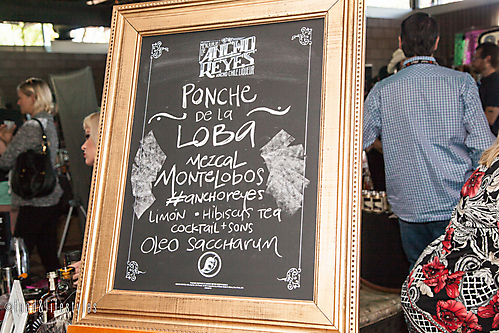 ANCHO
REYES
ANCHO CHILE LIQUEUR
PONCHE
DE LA
LOBA
MEZCAL
MONTELOBOS
#ANCHOREYES
LIMÓN • HIBISCUS TEA
COCKTAIL + SONS
OLEO SACCHARUM